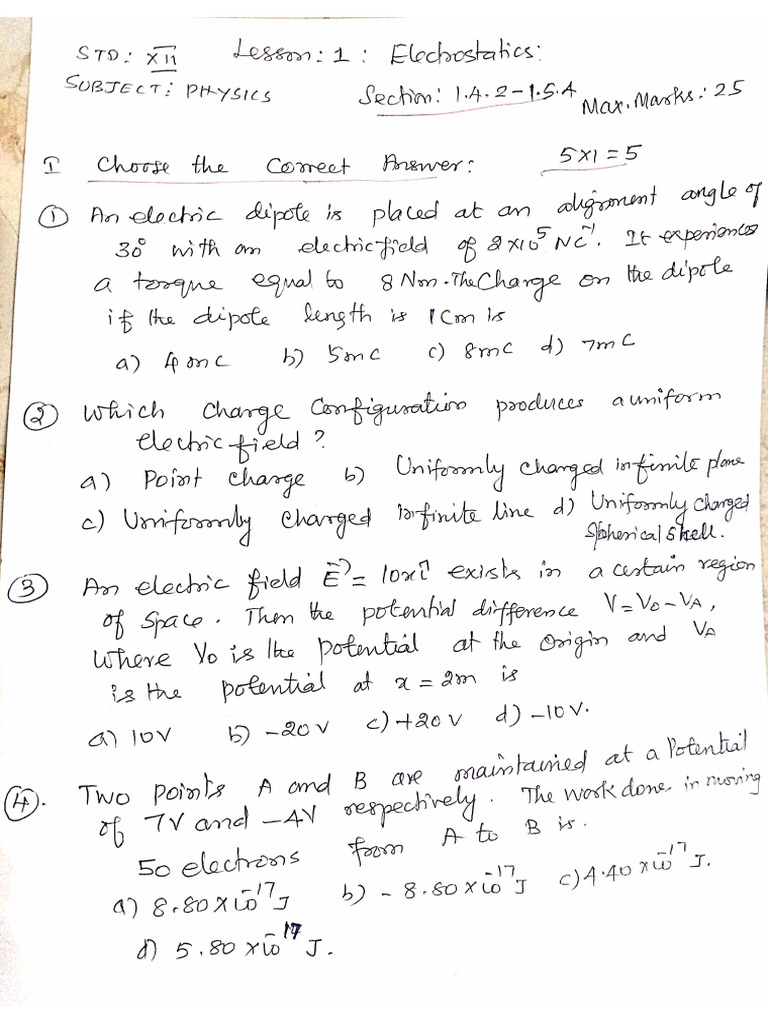 STD: XII Lesson: 1 : Electrostatics:
SUBJECT: PHYSICS Section: 1.4.2-1.5.4 Max. Marks: 25
I Choose the Correct Answer: 5x1=5
① An electric dipole is placed at an alignment angle of
30° with an electric field of 2×10⁵ NC⁻¹. It experiences
a torque equal to 8 Nm. The Charge on the dipole
if the dipole length is 1Cm is
a) 4mC b) 5mC c) 8mC d) 7mC
② Which Charge Configuration produces a uniform
electric field?
a) Point Charge b) Uniformly charged infinite plane
c) Uniformly Charged infinite line d) Uniformly Charged
Spherical Shell.
③ An electric field E⃗ = 10xî exists in a certain region
of space. Then the potential difference V=V₀-Vᴀ,
Where V₀ is the potential at the origin and Vᴀ
is the potential at x = 2m is
a) 10V b) -20V c) +20V d) -10V.
④. Two points A and B are maintained at a Potential
of 7V and -4V respectively. The work done in moving
50 electrons from A to B is.
a) 8.80×10⁻¹⁷J b) -8.80×10⁻¹⁷J c) 4.40×10⁻¹⁷J.
d) 5.80×10⁻¹⁷J.